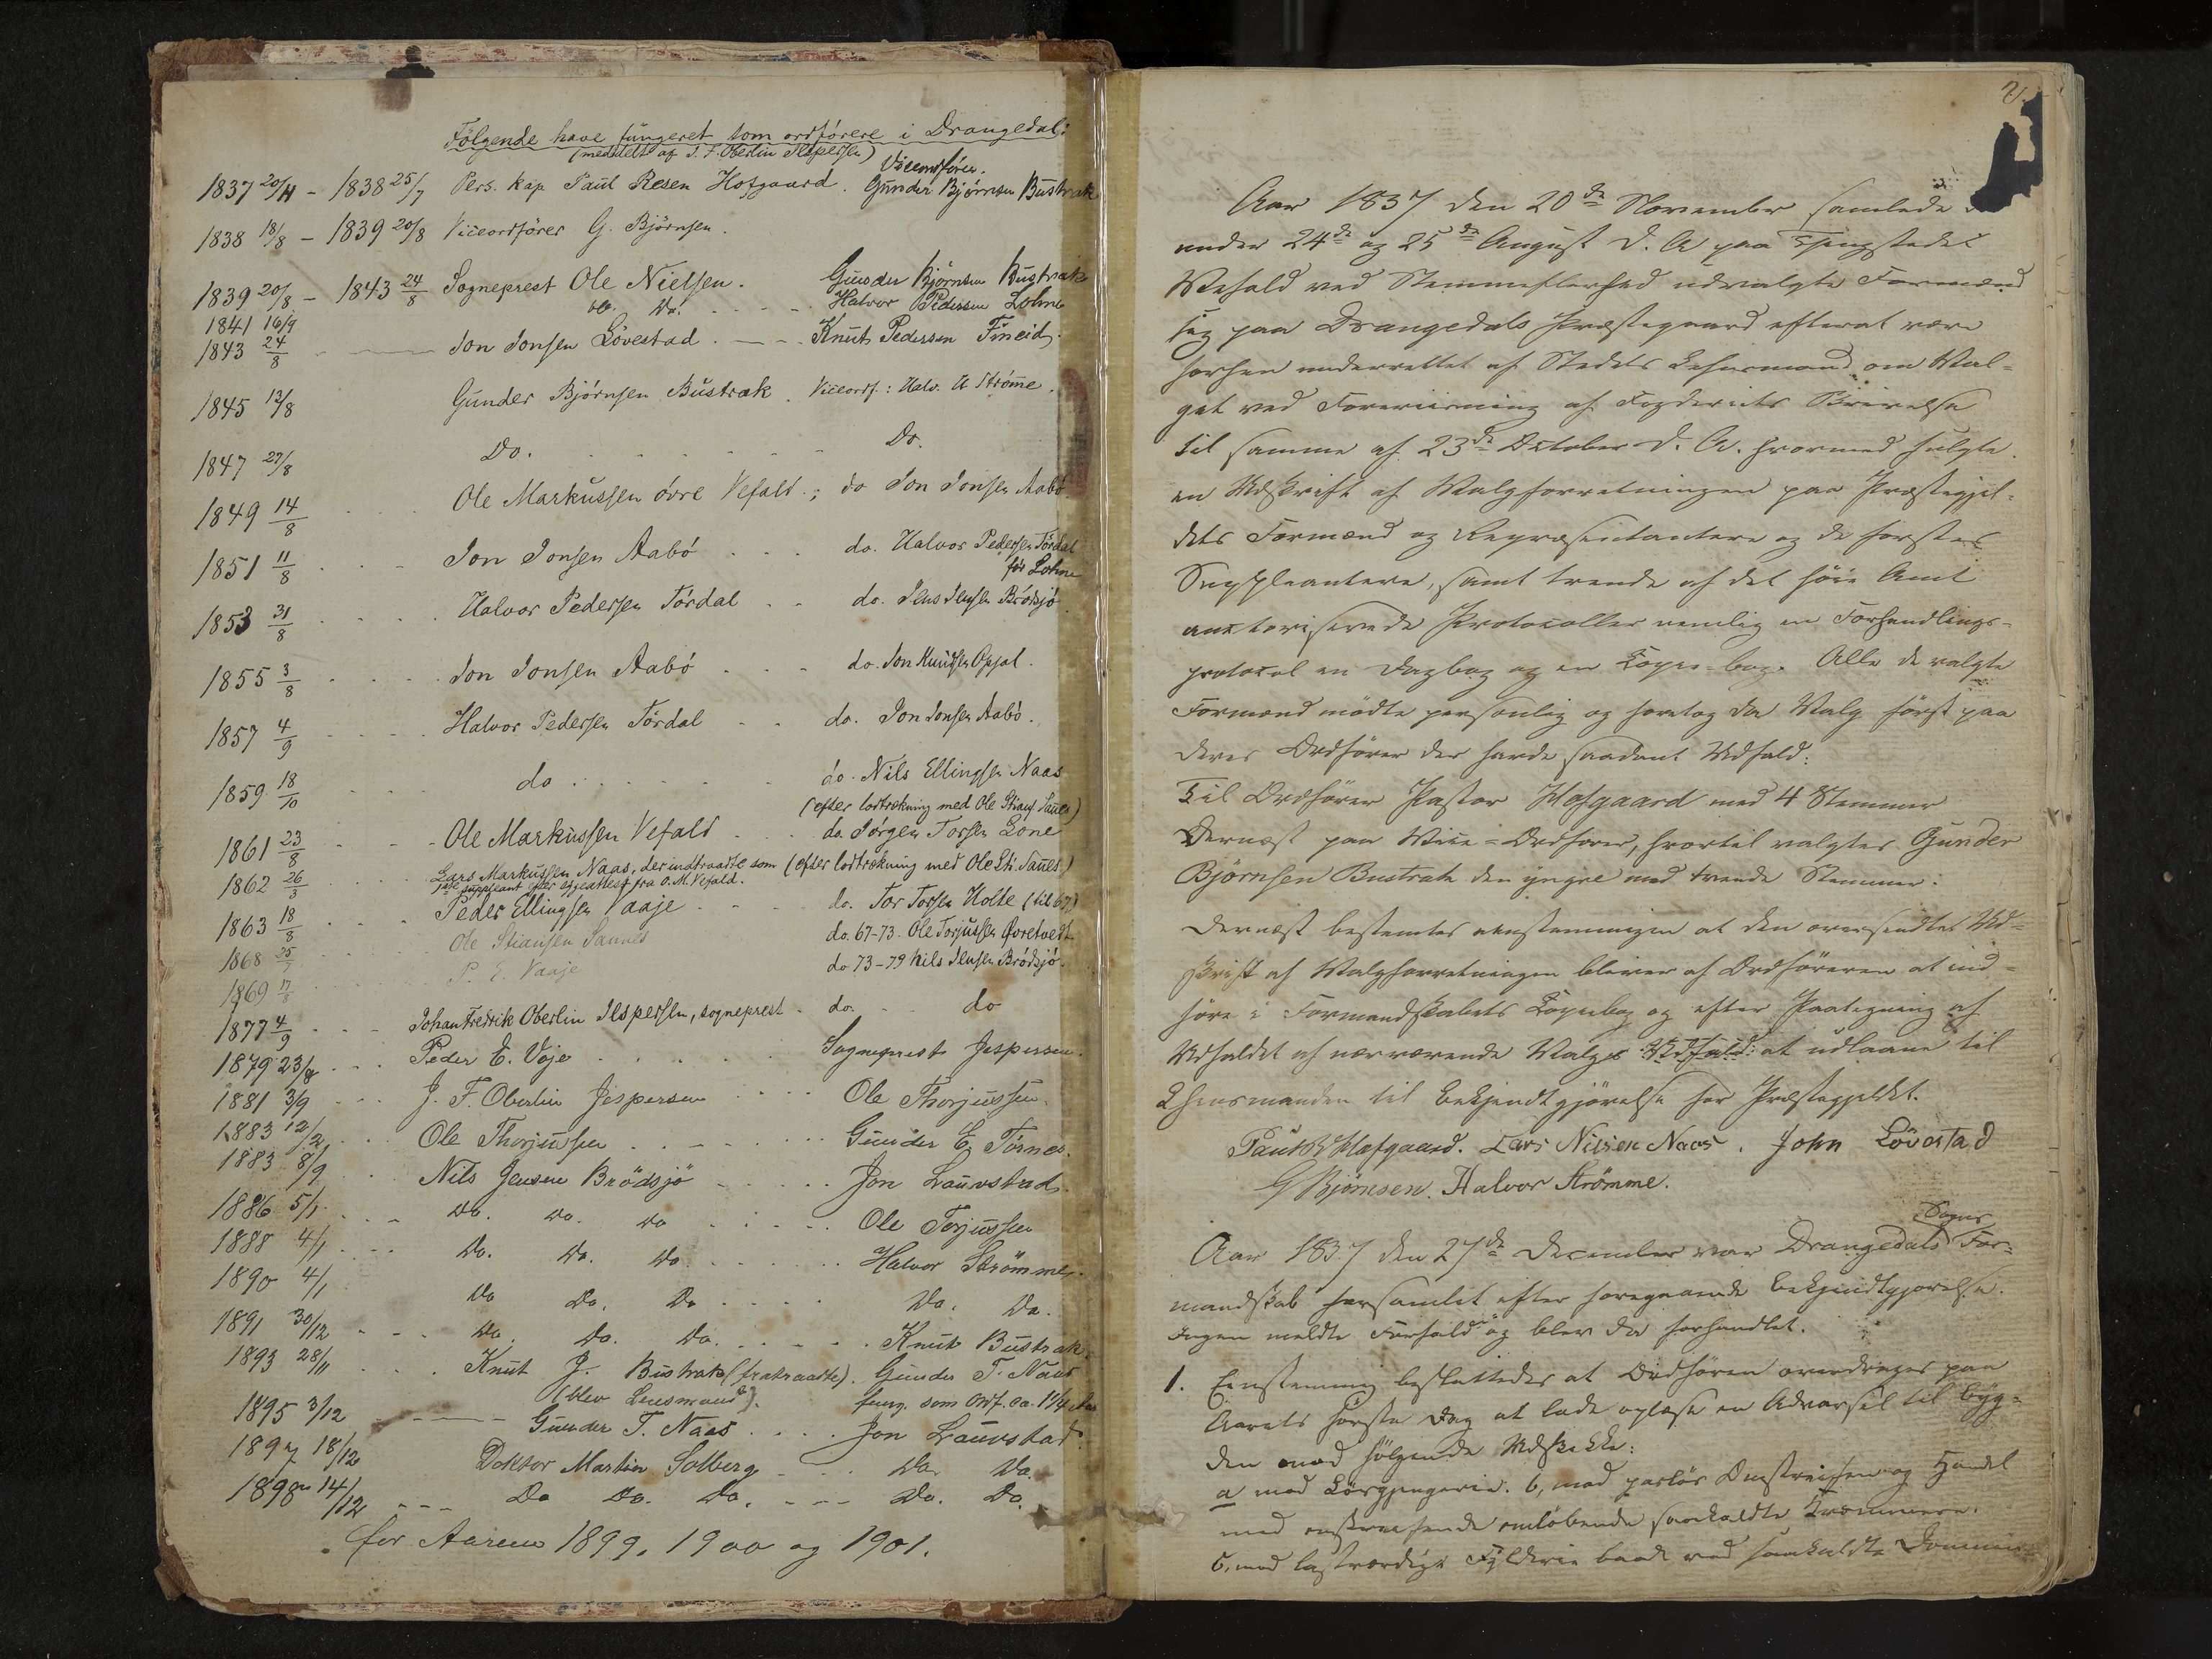 Følgende have fungeret som ordførere i Drangedal:
(meddelt af J. F. Oberlin Jespersen)
Viceordfører.
1837 20/11 – 1838 25/7 Pers. kap Paul Resen Hofgaard. Gunder Bjørnsen Bustrak
1838 18/8 – 1839 20/8 Viceordfører G. Bjørnsen.
1839 20/8 – 1843 24/8 Sogneprest Ole Nielsen. Gunder Bjørnsen Bustrak
1841 16/9 do. Do. Halvor Pedersen Lohne
1843 24/8 Jon Jonsen Løvestad. Knut Pedersen Fineid.
1845 13/8 Gunder Bjørnsen Bustrak. Viceordf.: Halv. H Strøme.
1847 27/8 Do. Do.
1849 14/8 Ole Markussen øvre Vefald.; do Jon Jonsen Aabø
1851 11/8 Jon Jonsen Aabø do. Halvor Pedersen Tørdal
før Lohne
1853 31/8 Halvor Pedersen Tørdal do. Jens Jensen Brødsjø
1855 3/8 Jon Jonsen Aabø do. Jon Knudsen Opjal.
1857 4/9 Halvor Pedersen Tørdal do. Jon Jonsen Aabø.
1859 18/10 do do. Nils Ellingsen Naas
(efter lodtrækning med Ole Stians. Sannes)
1861 23/8 Ole Markussen Vefald do. Jørgen Torsen Lone
1862 26/3 Lars Markussen Naas, der indtraadte som (efter lodtrækning med Ole St. Sannes)
1ste suppleant efter lægeattest fra O. M. Vefald.
1863 18/8 Peder Ellingsen Vaaje do. Tor Torsen Holte (til 67)
1868 25/7 Ole Stiansen Sannes do. 67-73 Ole Torjussen Øvretvedt
1869 17/8 P. E. Vaaje do 73-79 Nils Jensen Brødsjø
1877 4/9 Johan Fredrik Oberlin Jespersen, sogneprest. do. do
1879 23/8 Peder E. Voje Sogneprest Jespersen.
1881 3/9 J. F. Oberlin Jespersen Ole Thorjussen.
1883 12/2 Ole Thorjussen Gunder E. Tørnes.
1883 8/9 Nils Jensen Brødsjø Jon Laurstad.
1886 5/1 Do. Do. Do Ole Torjussen
1888 4/1 Do. Do. Do. Halvor Strømme.
1890 4/1 Do Do. Do Do. Do.
1891 30/12 Do. Do. Do. Knut Bustrak
1893 28/11 Knut J. Bustrak (fratraadte). Gunder T. Naas
(blev Lensmand). fung. som Ordf. ca. 1 1/4 Aar
1895 3/12 Gunder T. Naas Jon Laurstad.
1897 18/12 Doktor Martin Solberg Do. Do.
1898 14/12 Do Do. Do. Do. Do.
for Aarene 1899, 1900 og 1901.
2
Aar 1837 den 20de November samlede
under 24de og 25de August d. A paa Thingstedet
Wefald ved Stemmefleerhed udvalgte Formænd
sig paa Drangedals Præstegaard efterat være
forhen underrettet af Stedets Lehnsmand om Val=
get ved Foreviisning af Fogderiets Skrivelse
til samme af 23de October d. A. hvormed fulgte
en Udskrift af Valgforretningen paa Præstegjel=
dets Formænd og Repræsentantere og de førstes
Suppleantere, samt trende af det høie Amt
auctoriserede Protocoller nemlig en Forhandlings=
protocol en Dagbog og en Copie-bog. Alle de valgte
Formænd mødte personlig og foretog da Valg først paa
deres Ordfører der havde saadant Udfald:
Til Ordfører Pastor Hofgaard med 4 Stemmer
Dernæst paa Vice=Ordfører, hvortil valgtes Gunder
Bjørnsen Bustrak den yngre med trende Stemmer:
Dernæst bestemtes eenstemmigen at den oversendte Ud=
skrift af Valgforretningen bliver af Ordføreren at ind=
føre i Formandskabets Copiebog og efter Paategning af
Udfaldet af nærværende Valgs Udfald at udlaane til
Lhensmanden til bekjendtgjørelse for Præstegjeldet.
Paul R Hofgaard. Lars Nilsen Naas. John Lövestad
G Bjørnsen. Halvor Strömme.
Aar 1837 den 27de December var Drangedals Sogns For=
mandskab forsamlet efter foregaaende bekjendtgjørelse.
Ingen meldte Forfald og blev da forhandlet.
1. Eenstemmig besluttedes at Ordføren overdrages paa
Aarets første Dag at lade oplæse en Advarsel til byg=
den mod følgende Udskikke:
a mod Løsgjængerie. b, mod pasløs Omstreifen og Handel
med omstreifende omløbende saakaldte Kræmmere.
c, mod lastværdige Fylderie baade ved saakaldte